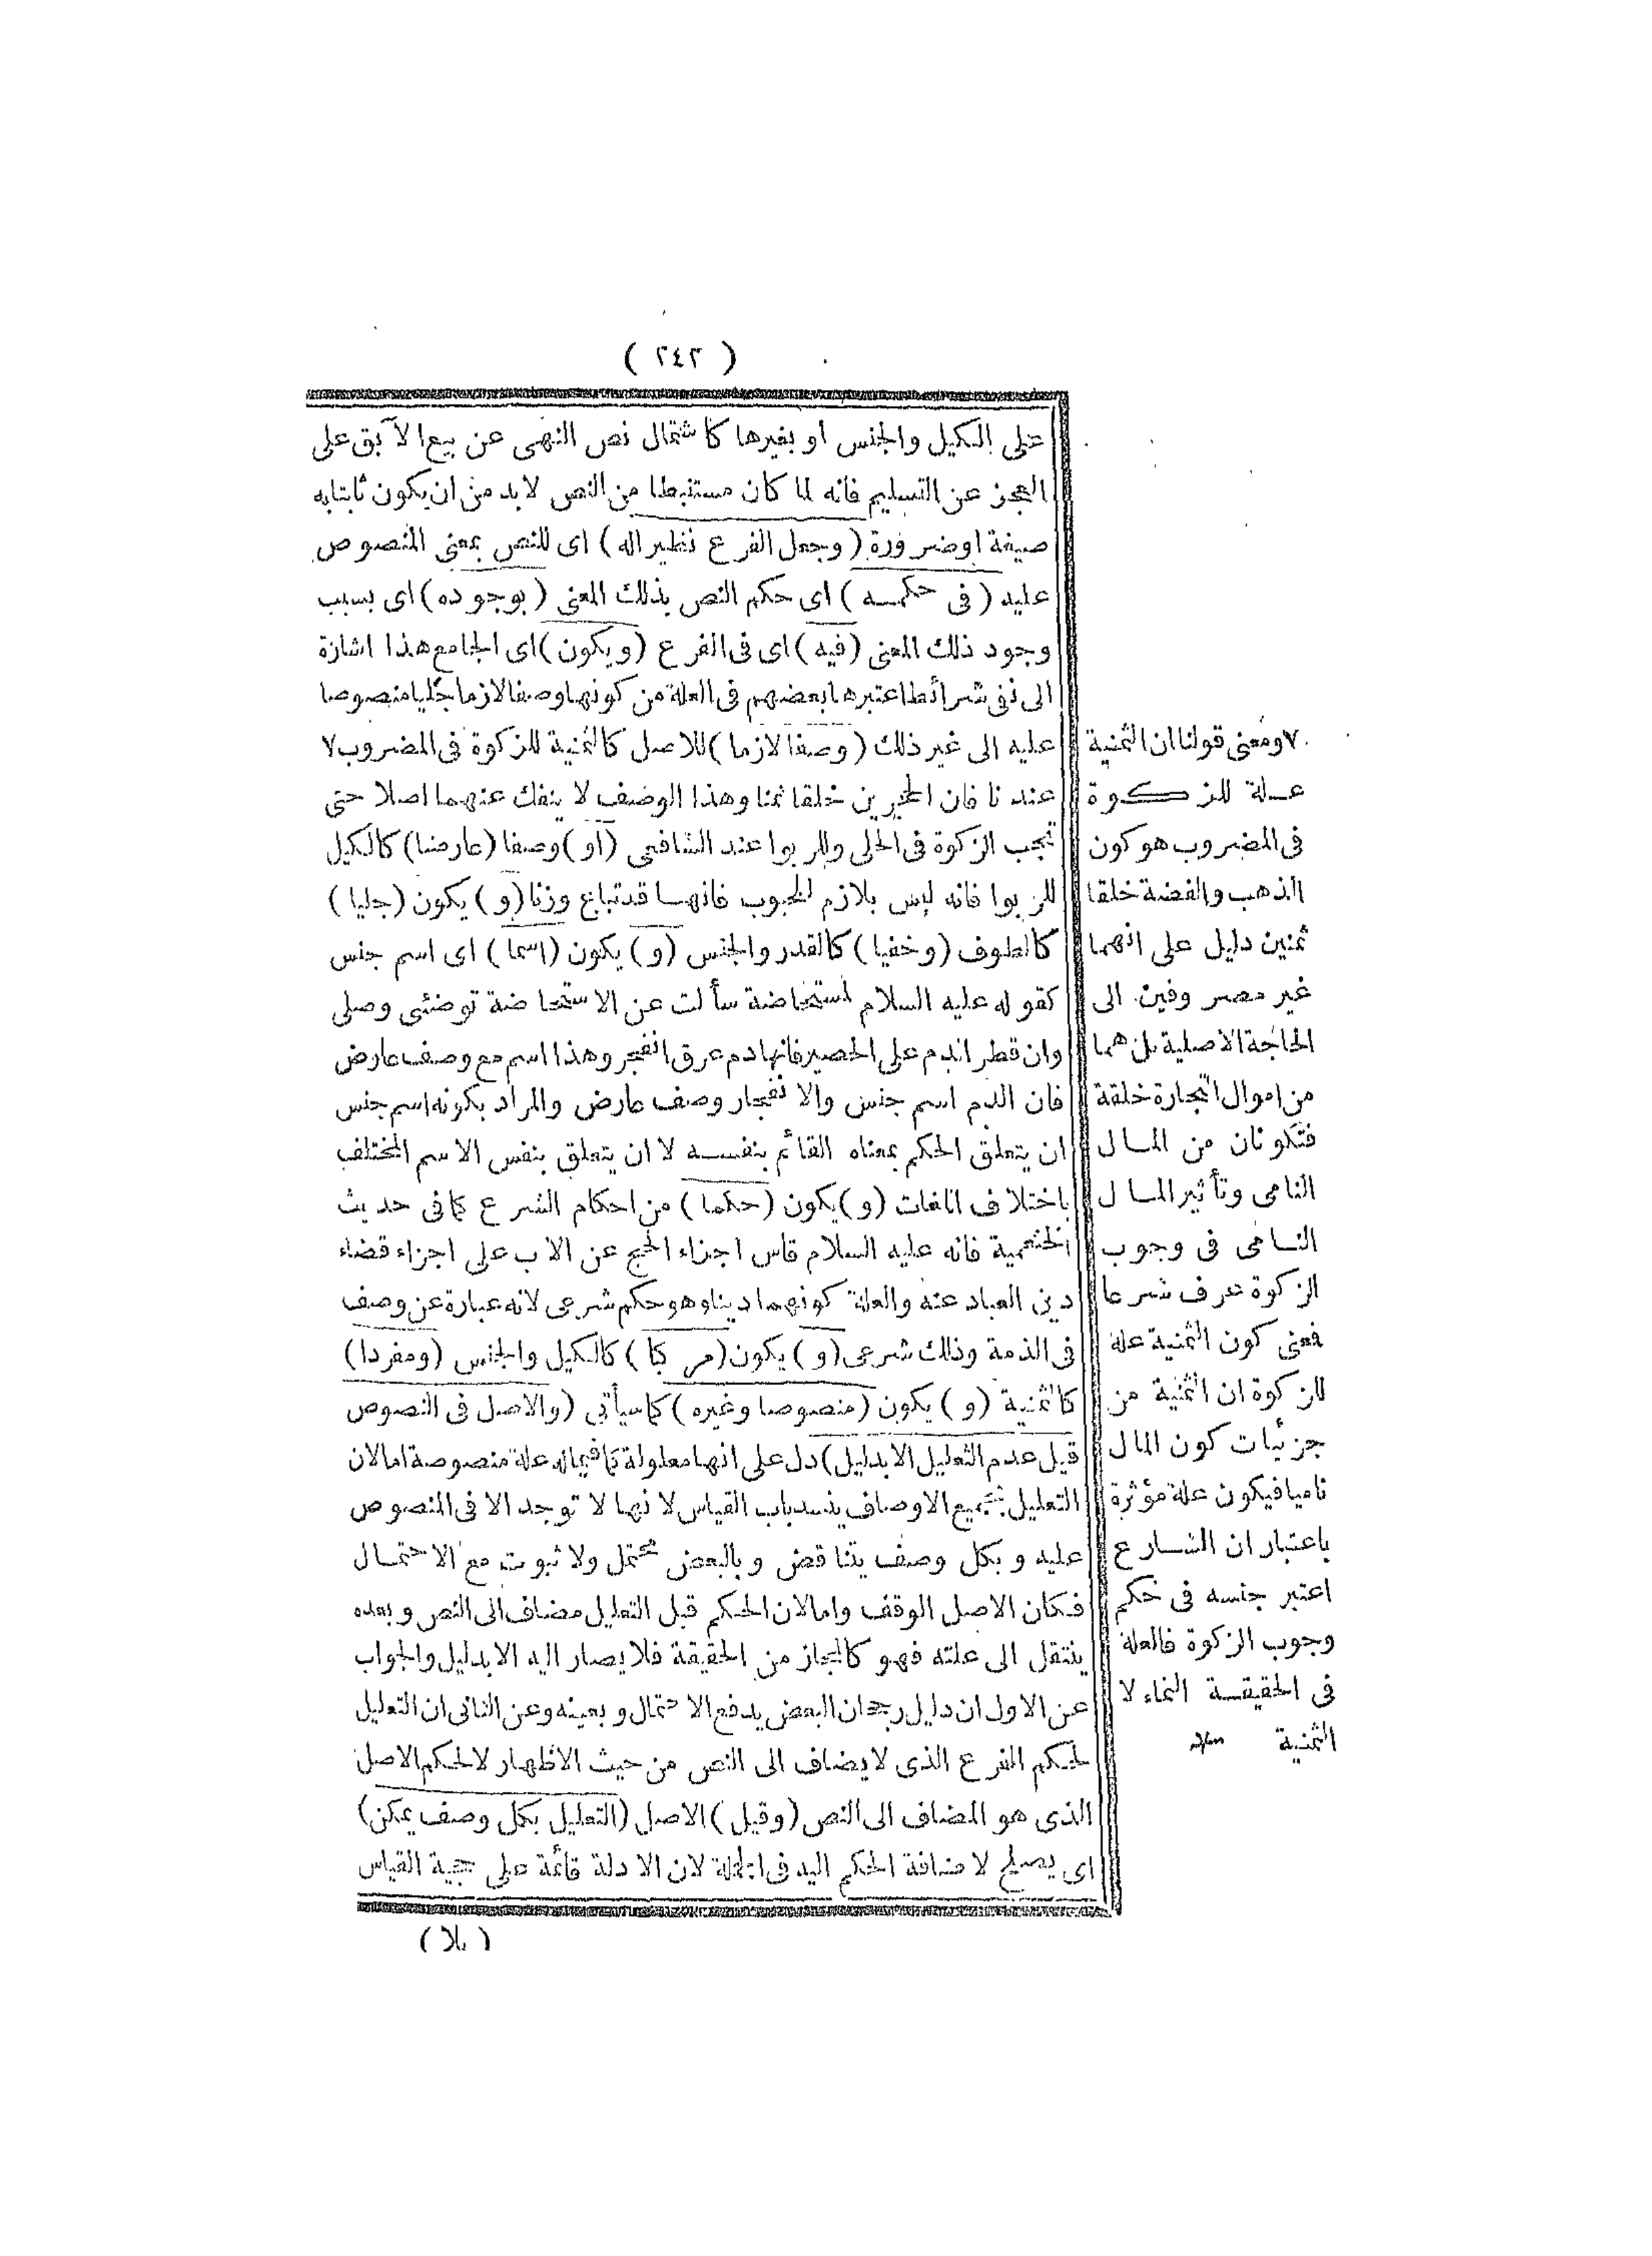 ( ٢٤٢ )
على الكيل والجنس او بغيرها كاشتمال نص النهى عن بيع الآبق على
العجز عن التسليم فانه لما كان مستنبطا من النص لابد من ان يكون ثابتا به
صيغة اوضرورة ( وجعل الفرع نظيرا له ) اى للنص بمعنى المنصوص
عليه ( فى حكمه ) اى حكم النص بذلك المعنى ( بوجوده ) اى بسبب
وجود ذلك المعنى ( فيه ) اى فى الفرع ( ويكون ) اى الجامع هذا اشارة
الى نفى شرائط اعتبرها بعضهم فى العلة من كونها وصفا لازما جليا منصوصا
عليه الى غير ذلك ( وصفا لازما ) للاصل كالثمنية للزكوة فى المضروب ٧
عند نا فان الحجرين خلقا ثمنا وهذا الوصف لا ينفك عنهما اصلا حتى
تجب الزكوة فى الحلى وللربوا عند الشافعى ( او ) وصفا ( عارضا ) كالكيل
للربوا فانه ليس بلازم للحبوب فانهـا قد تباع وزنا ( و ) يكون ( جليا )
كالطوف ( وخفيا ) كالقدر والجنس ( و ) يكون ( اسما ) اى اسم جنس
كقوله عليه السلام لمستحاضة سألت عن الاستحاضة توضئى وصلى
وان قطر الدم على الحصير فانها دم عرق انفجر وهذا اسم مع وصف عارض
فان الدم اسم جنس والانفجار وصف عارض والمراد بكونه اسم جنس
ان يتعلق الحكم بمعناه القائم بنفسـه لا ان يتعلق بنفس الاسم المختلف
باختلاف اللغات ( و ) يكون ( حكما ) من احكام الشرع كما فى حديث
الخثعمية فانه عليه السلام قاس اجزاء الحج عن الاب على اجزاء قضاء
دين العباد عنه والعلة كونهما دينا وهو حكم شرعى لانه عبارة عن وصف
فى الذمة وذلك شرعى ( و ) يكون ( مركبا ) كالكيل والجنس ( ومفردا )
كالثمنية ( و ) يكون ( منصوصا وغيره ) كما سيأتى ( والاصل فى النصوص
قيل عدم التعليل الا بدليل ) دل على انها معلولة كما فيما له علة منصوصة اما لان
التعليل بجميع الاوصاف ينسد باب القياس لانها لا توجد الا فى المنصوص
عليه وبكل وصف يتناقض وبالبعض محتمل ولا ثبوت مع الاحتمـال
فـكان الاصل الوقف واما لان الحكم قبل التعليل مضاف الى النص وبعده
ينتقل الى علته فهو كالمجاز من الحقيقة فلا يصار اليه الا بدليل والجواب
عن الاول ان دليل رجحان البعض يدفع الاحتمال وبعينه وعن الثانى ان التعليل
لحكم الفرع الذى لا يضاف الى النص من حيث الاظهار لا لحكم الاصل
الذى هو المضاف الى النص ( وقيل ) الاصل ( التعليل بكل وصف يمكن )
اى يصلح لاضافة الحكم اليه فى الجملة لان الادلة قائمة على حجية القياس
( بلا )
٧ ومعنى قولنا ان الثمنية
عـلة للزكـوة
فى المضروب هو كون
الذهب والفضة خلقا
ثمنين دليل على انهما
غير مصروفين الى
الحاجة الاصلية بل هما
من اموال التجارة خلقة
فتكونان من المـال
النامى وتأثير المـال
النـامى فى وجوب
الزكوة عرف شرعا
فمعنى كون الثمنية علة
للزكوة ان الثمنية من
جزئيات كون المال
ناميا فيكون علة مؤثرة
باعتبار ان الشـارع
اعتبر جنسه فى حكم
وجوب الزكوة فالعلة
فى الحقيقـة النماء لا
الثمنية